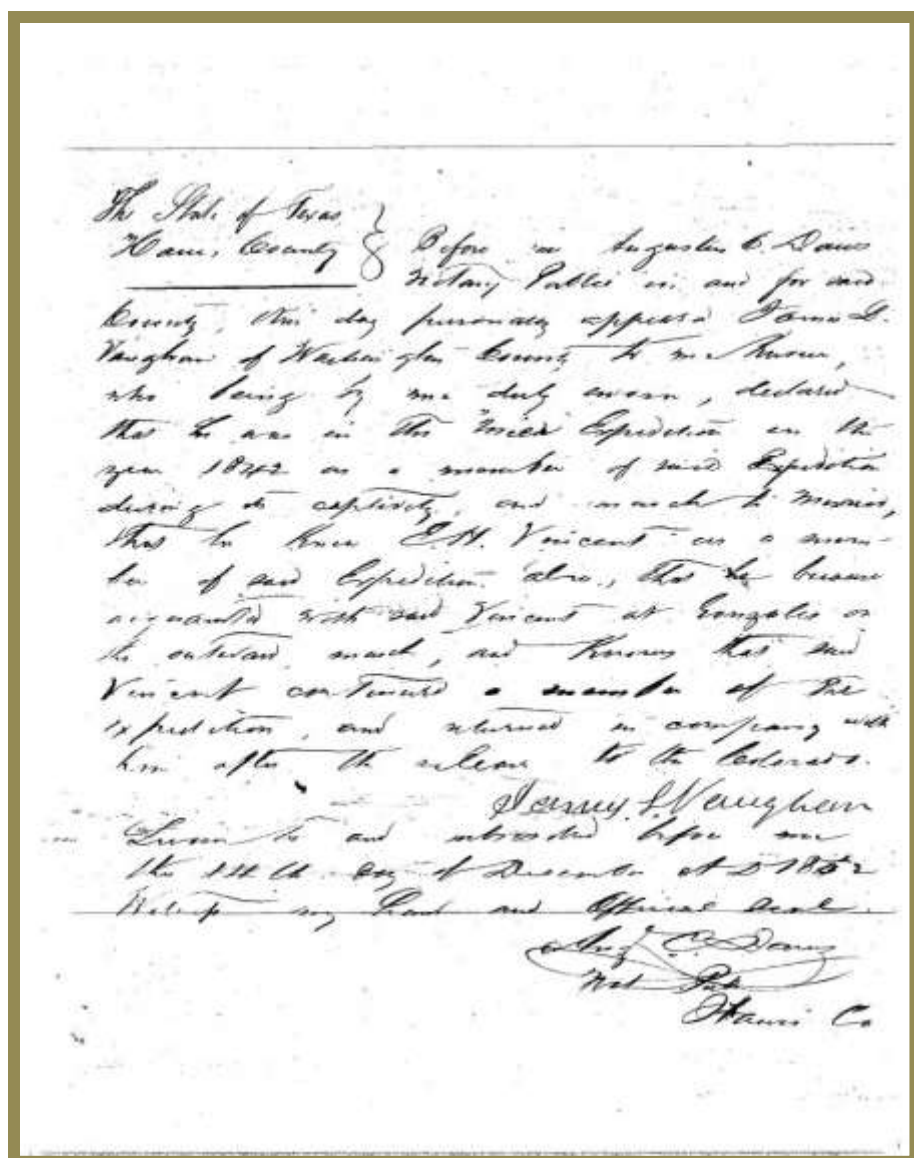 The State of Texas
Harris County } Before me Augustus C. Daws
Notary Public in and for said
County, this day personally appeard James L.
Vaughan of Washington County to me known,
who being by me duly sworn, declared
that he was in the Expedition in the
year 1842 as a member of said Expedition
during its captivity, and march to Mexico,
that he knew E.H. Vincent as a mem-
ber of said Expedition also, that he became
acquainted with said Vincent at Gonzales on
the outward march, and knows that said
Vincent continued a member of the
Expedition, and returned in company with
him after the release to the Colorado.
James L Vaughan
Sworn to and subscribed before me
this 14th day of December A D 1852
Witness my hand and Official Seal.
Aug. C. Daws
Not Pub
Harris Co